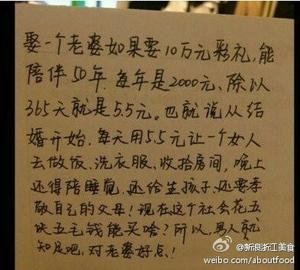 娶一个老婆如果要10万元彩礼,能
陪伴50年.每年是2000元.除以
365天就是5.5元。也就说从结
婚开始.每天用5.5元让一个女人
去做饭、洗衣服、收拾房间,晚上
还得陪睡觉.还给生孩子.还要孝
敬自己的父母!现在这个社会花五
块五毛钱能买啥?所以,男人就
知足吧,对老婆好点!
@新浪浙江美食
weibo.com/aboutfood